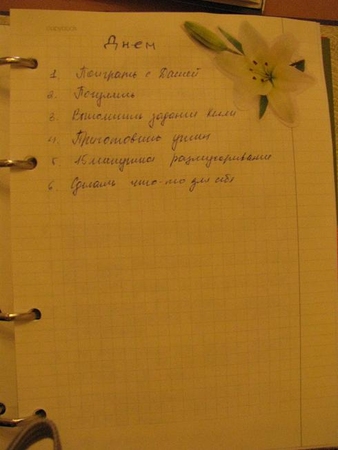 Днем
1. Поиграть с Дашей
2. Погулять
3. Выполнить задание
4. Приготовить ужин
5. 15 минутное размусоривание
6. Сделать что-то для себя